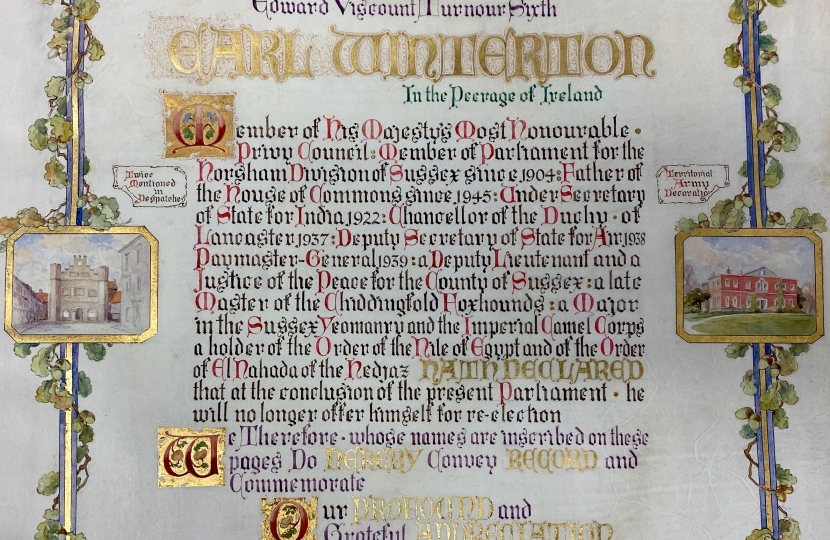 Edward Viscount Turnour Sixth
EARL WINTERTON
In the Peerage of Ireland
Member of His Majesty's Most Honourable ·
Privy Council : Member of Parliament for the
Horsham Division of Sussex since 1904 : Father of
the House of Commons since 1945 : Under Secretary
of State for India 1922 : Chancellor of the Duchy · of
Lancaster 1937 : Deputy Secretary of State for Air 1938
Paymaster-General 1939 : a Deputy Lieutenant and a
Justice of the Peace for the County of Sussex : a late
Master of the Chiddingfold Foxhounds : a Major
in the Sussex Yeomanry and the Imperial Camel Corps
a holder of the Order of the Nile of Egypt and of the Order
of El Nahada of the Hedjaz HATH DECLARED
that at the conclusion of the present Parliament · he
will no longer offer himself for re-election
We Therefore · whose names are inscribed on these
pages Do HEREBY Convey RECORD and
Commemorate
Our PROFOUND and
Grateful APPRECIATION
Twice
Mentioned
in
Despatches
Territorial
Army
Decoration